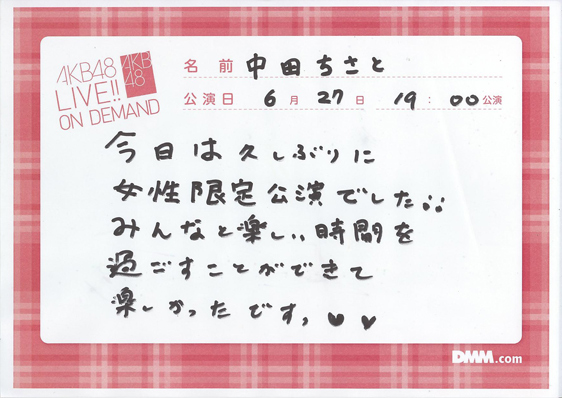 AKB48
LIVE!!
ON DEMAND
AKB
48
名前 中田ちさと
公演日 6月27日 19:00公演
今日は久しぶりに
女性限定公演でした
みんなと楽しい時間を
過ごすことができて
楽しかったです。
DMM.com